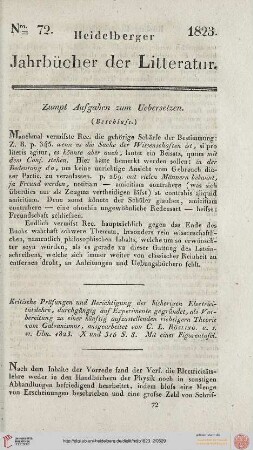 Nro. 72.
Heidelberger
1823.
Jahrbücher der Litteratur.
Zumpt Aufgaben zum Uebersetzen.
(Beschluss.)
Manchmal vermifste Rec. die gehörige Schärfe der Bestimmung:
Z. B. p. 345. wenn es die Sache der Wissenschaften ist, si pro
literis agitur, es könnte aber auch, lautet ein Beisatz, quum mit
dem Conj. stehen. Hier hätte bemerkt werden sollen: in der
Bedeutung da, um keine unrichtige Ansicht vom Gebrauch dieser
Partic. zu veranlassen. p 269. mit vielen Männern bekannt,
ja Freund werden, notitiam — amicitiam contrahere (was sich
überdies mit cum alqo construirt) giebt ea contrahis aliquid
amicitiam. Denn sonst könnte der Schüler glauben, amicitiam
contrahere — eine ohnehin ungewöhnliche Redensart — heifse:
Freundschaft schliefsen.
Endlich vermifst Rec. hauptsächlich gegen das Ende des
Buchs wahrhaft schwere Themata, besonders rein wissenschaftlichen,
namentlich philosophischen Inhalts, welche um so wünschenswerther
seyn würden, als es gerade zu dieser Gattung des Lateinschreibens,
welche sich immer weiter von classischer Reinheit zu
entfernen droht, an Anleitungen und Uebungsbüchern fehlt.
Kritische Prüfungen und Berichtigung der bisherigen Electricitätslehre,
durchgängig auf Experimente gegründet, als Vorbereitung
zu einer künftig aufzustellenden richtigern Theorie
vom Galvanismus, ausgearbeitet von C. L.
Ulm. 1823. X und 316 S. 8. Mit einer Figurentafel.
Nach dem Inhalte der Vorrede fand der Verf. die Electricitätslehre
weder in den Handbüchern der Physik noch in sonstigen
Abhandlungen befriedigend bearbeitet, indem blofs eine Menge
von Erscheinungen beschrieben und eine grofse Zahl von Schrif-
72